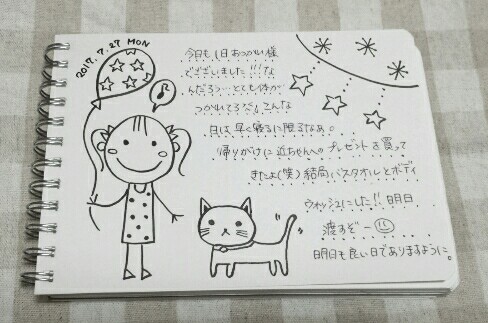 2017.7.27 MON
今日も1日おつかれ様
でございました!!!な
んだろう…とても体が
つかれてるな。こんな
日は早く寝るに限るなぁ。
帰りがけに近ちゃんへのプレゼントを買って
きたよ(笑)結局バスタオルとボディ
ウォッシュにした!!明日
渡すぞー
明日も良い日でありますように。